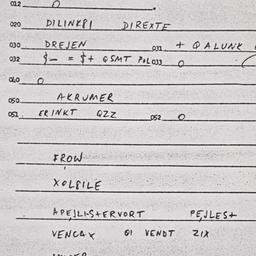 012 O
020 DILINKPI DIREXTE
030 DREJEN 031 + QALUNK
032 $— = $+ QSMT POL 033 O
040 O
050 AKRUMER
051 ERINKT QZZ 052 O
FROW
XOLFILE
APEJLISTERVORT PEJLEST
VENCAX QI VENDT ZIX